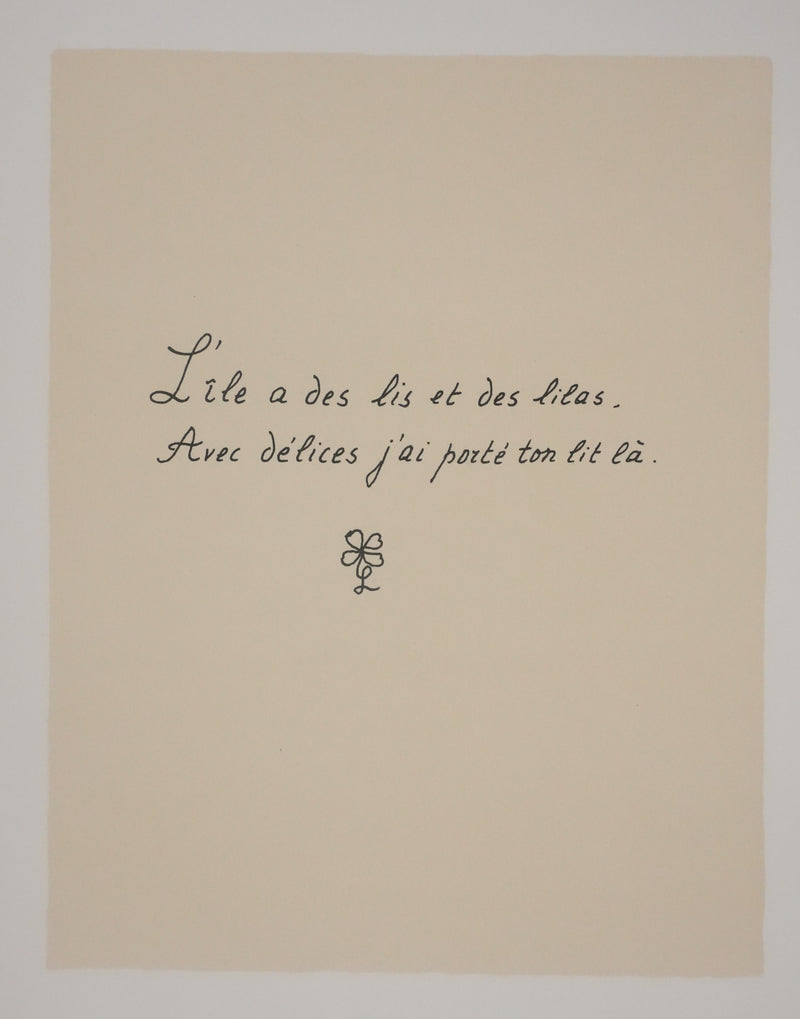 L'île a des lis et des lilas.
Avec délices j'ai porté ton lit là.
L